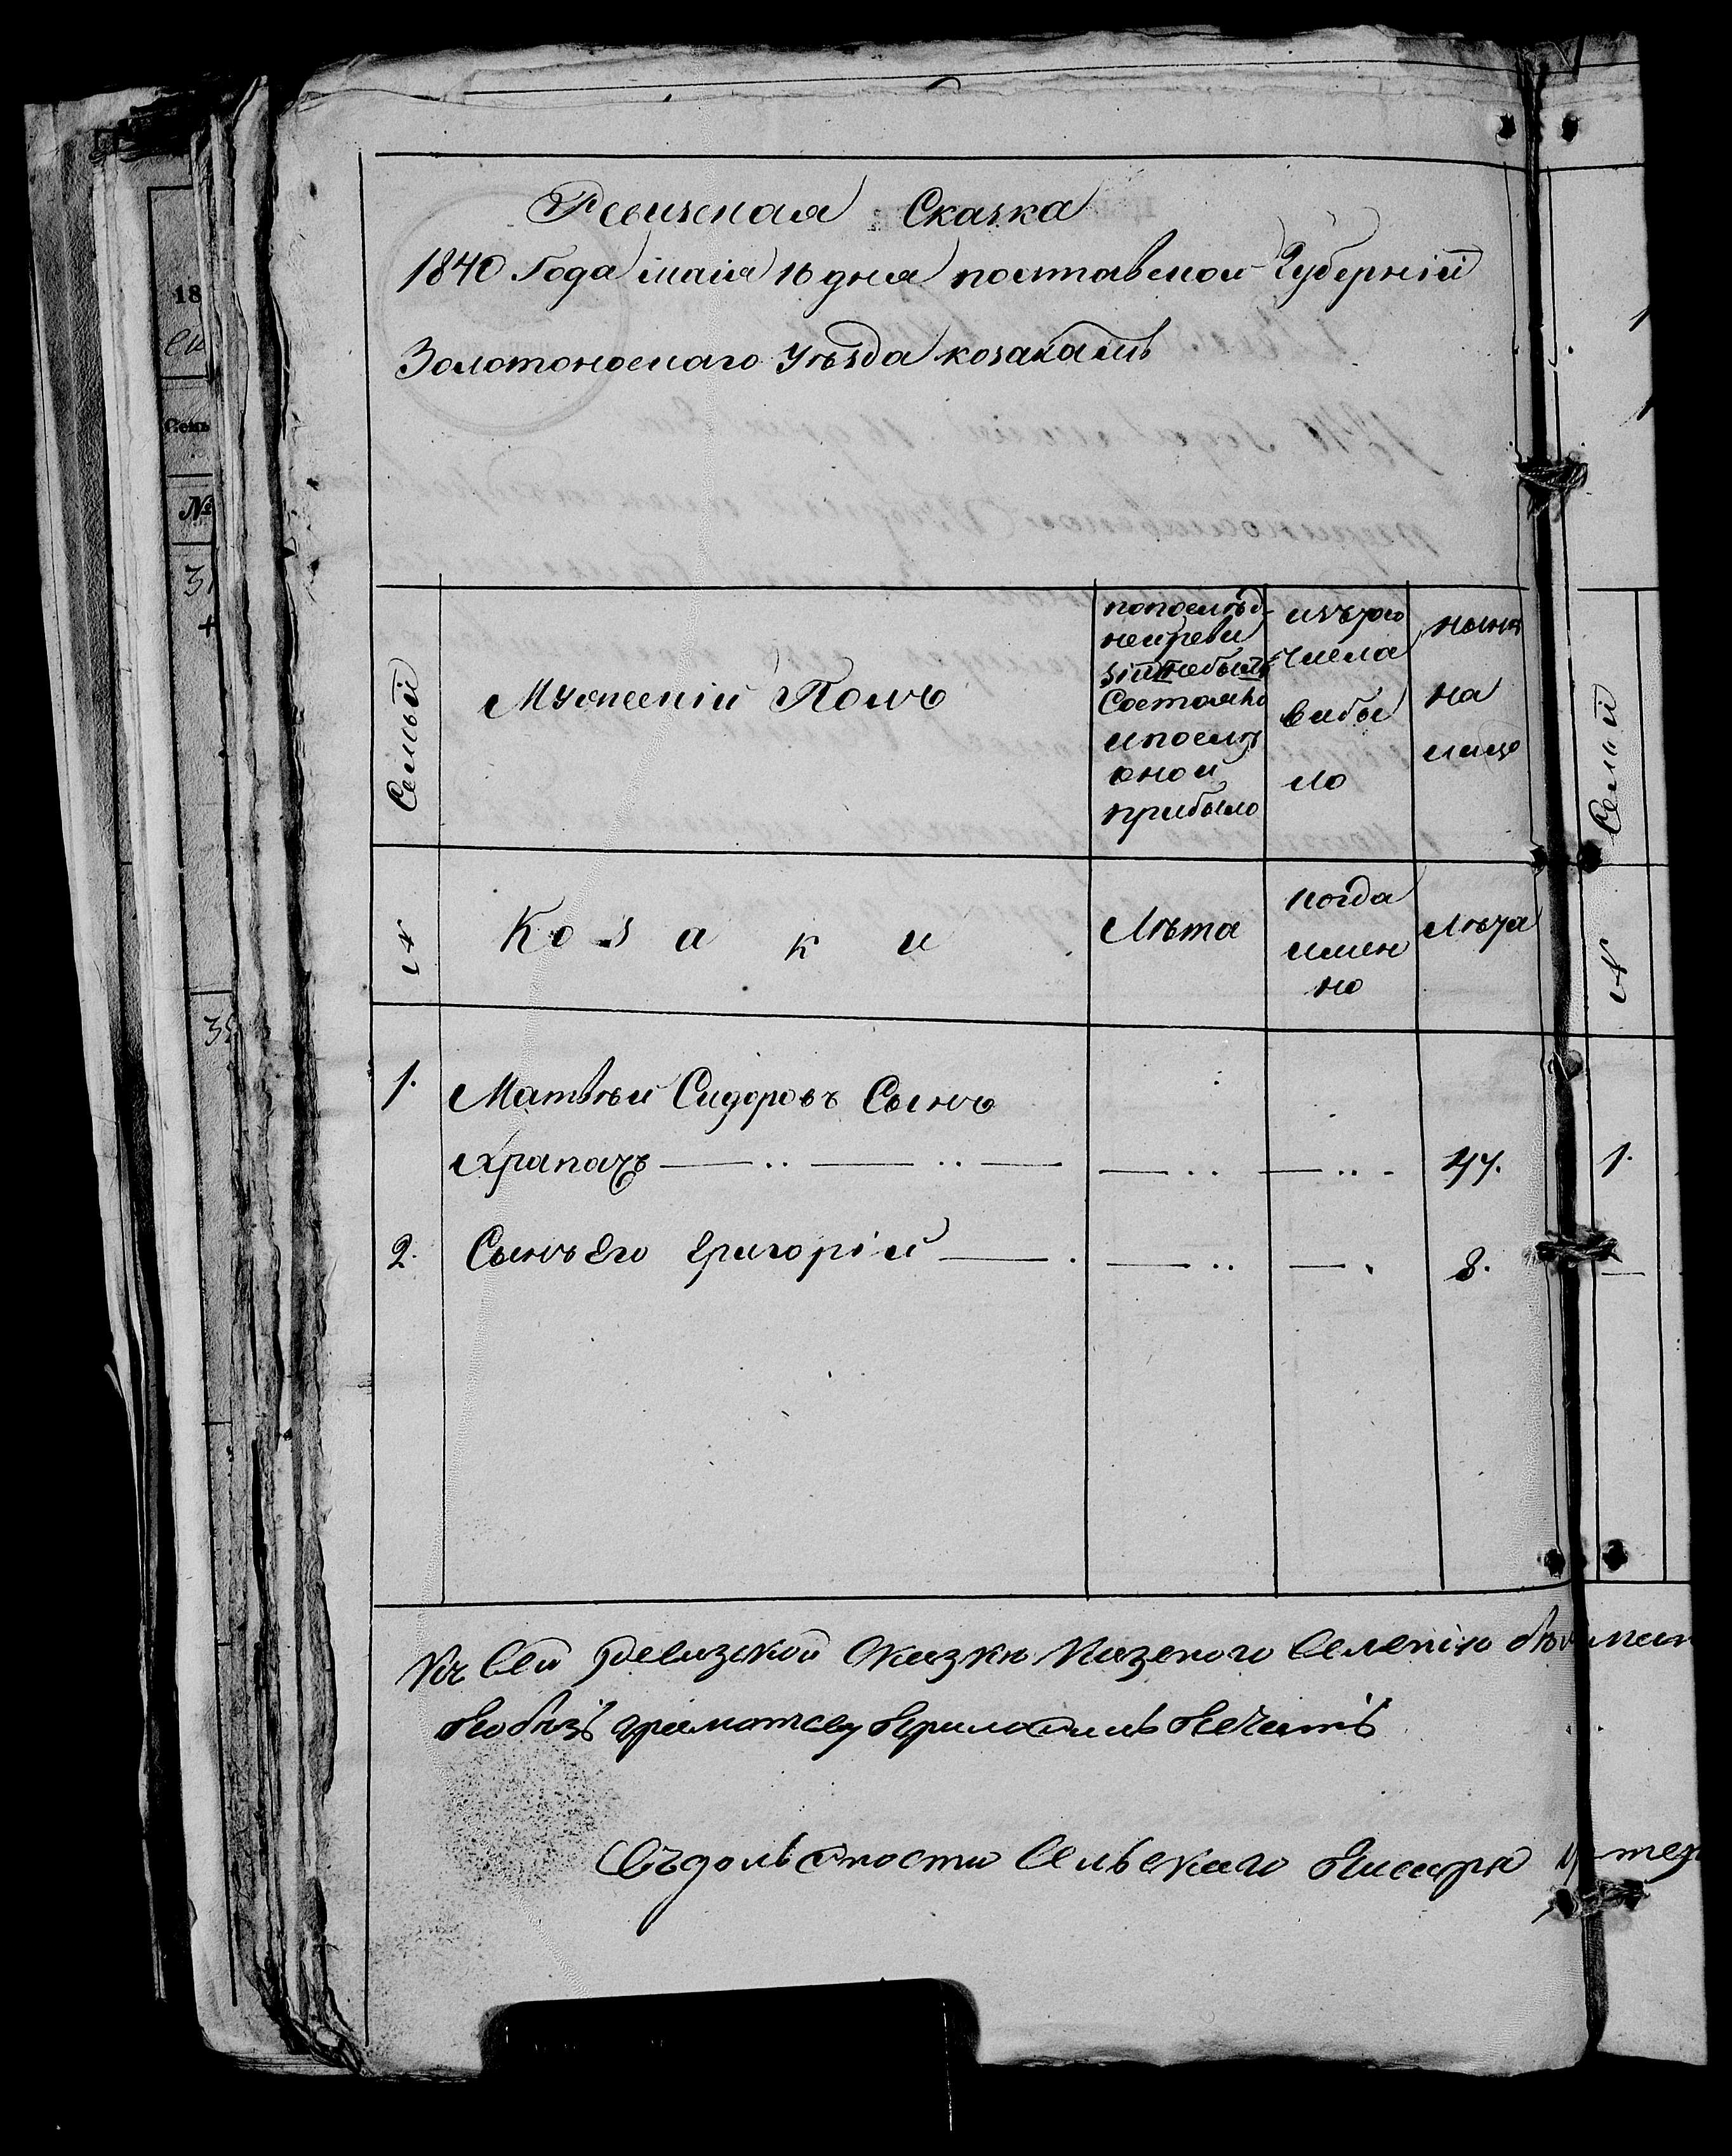 Ревизская Сказка
1840 Года маія 16 дня полтавской Губерніи
Золотоноскаго Уѣзда козакамъ
Семьи
Мужескій Полъ
попослѣд-
ней реви
зіи
Состояло
и послѣ
оной
прибыло
изътого
числа
выбы
ло
нынѣ
на
лицо
Семьи
№
Козаки
Лѣта
когда
имен
но
Лѣта
№
1. Матвѣй Сидоровъ Сынъ
Храпачъ 47. 1.
2. Сынъ Его Григорій 8.
Къ Сей Ревизской Сказки Казеного Селенія
грамотсву приложилъ печать
Въ должности Сельскаго Писаря
18
Семь
№